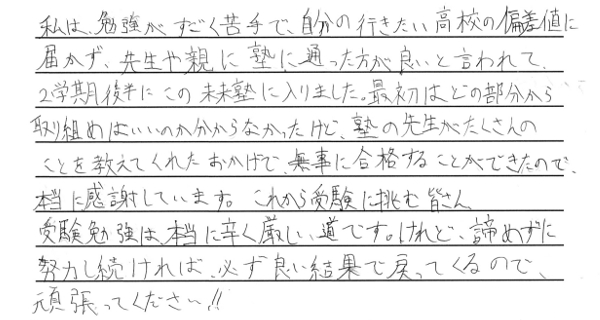 私は、勉強がすごく苦手で、自分の行きたい高校の偏差値に
届かず、先生や親に塾に通った方が良いと言われて、
2学期後半にこの未来塾に入りました。最初はどの部分から
取り組めばいいのか分からなかったけど、塾の先生がたくさんの
ことを教えてくれたおかげで、無事に合格することができたので、
本当に感謝しています。これから受験に挑む皆さん
受験勉強は本当に辛く厳しい道です。けれど、諦めずに
努力し続ければ、必ず良い結果で戻ってくるので、
頑張ってください!!